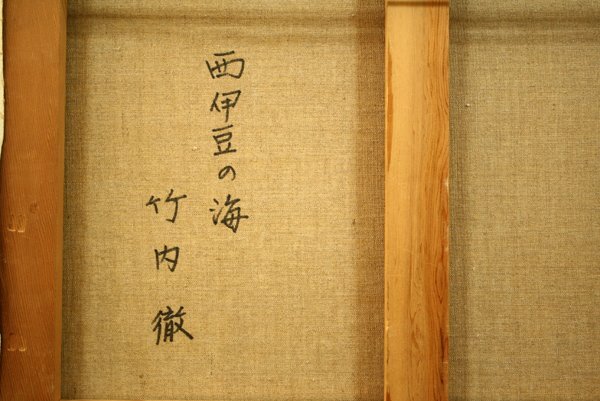 西伊豆の海
竹内徹